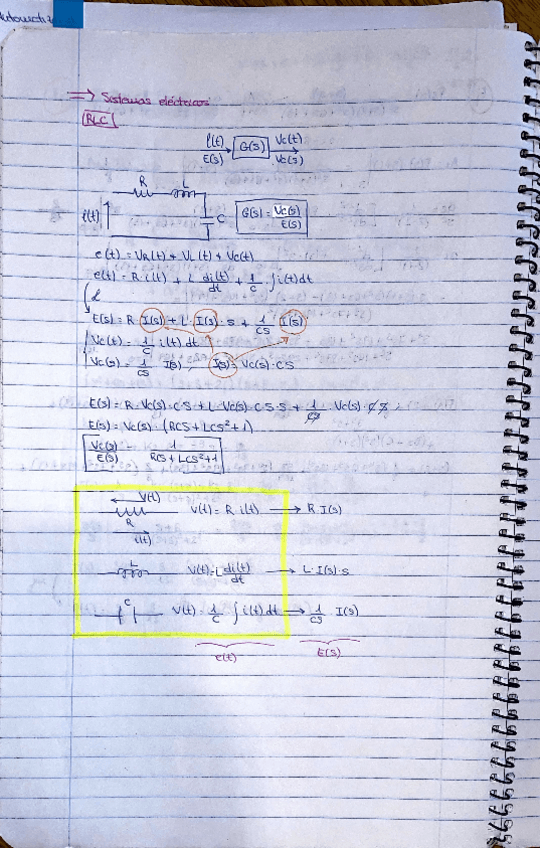 Automatiz
⇒ Sistemas eléctricos
RLC
e(t) → G(s) → Vc(t)
E(s) Vc(s)
R L
e(t) C G(s) = Vc(s)/E(s)
e(t) = VR(t) + VL(t) + Vc(t)
e(t) = R·i(t) + L di(t)/dt + 1/C · ∫i(t)dt
L
E(s) = R I(s) + L · I(s) · s + 1/Cs I(s)
Vc(t) = 1/C ∫ i(t) dt
Vc(s) = 1/Cs I(s) I(s) = Vc(s) · Cs
E(s) = R · Vc(s) · Cs + L · Vc(s) · Cs · s + 1/Cs · Vc(s) · Cs
E(s) = Vc(s) · (RCs + LCs² + 1)
Vc(s)/E(s) = 1/RCs + LCs² + 1
V(t)
V(t) = R·i(t) → R.I(s)
R
i(t)
L V(t) = L di(t)/dt → L·I(s)·s
C V(t) = 1/C ∫i(t)dt → 1/Cs I(s)
e(t) E(s)